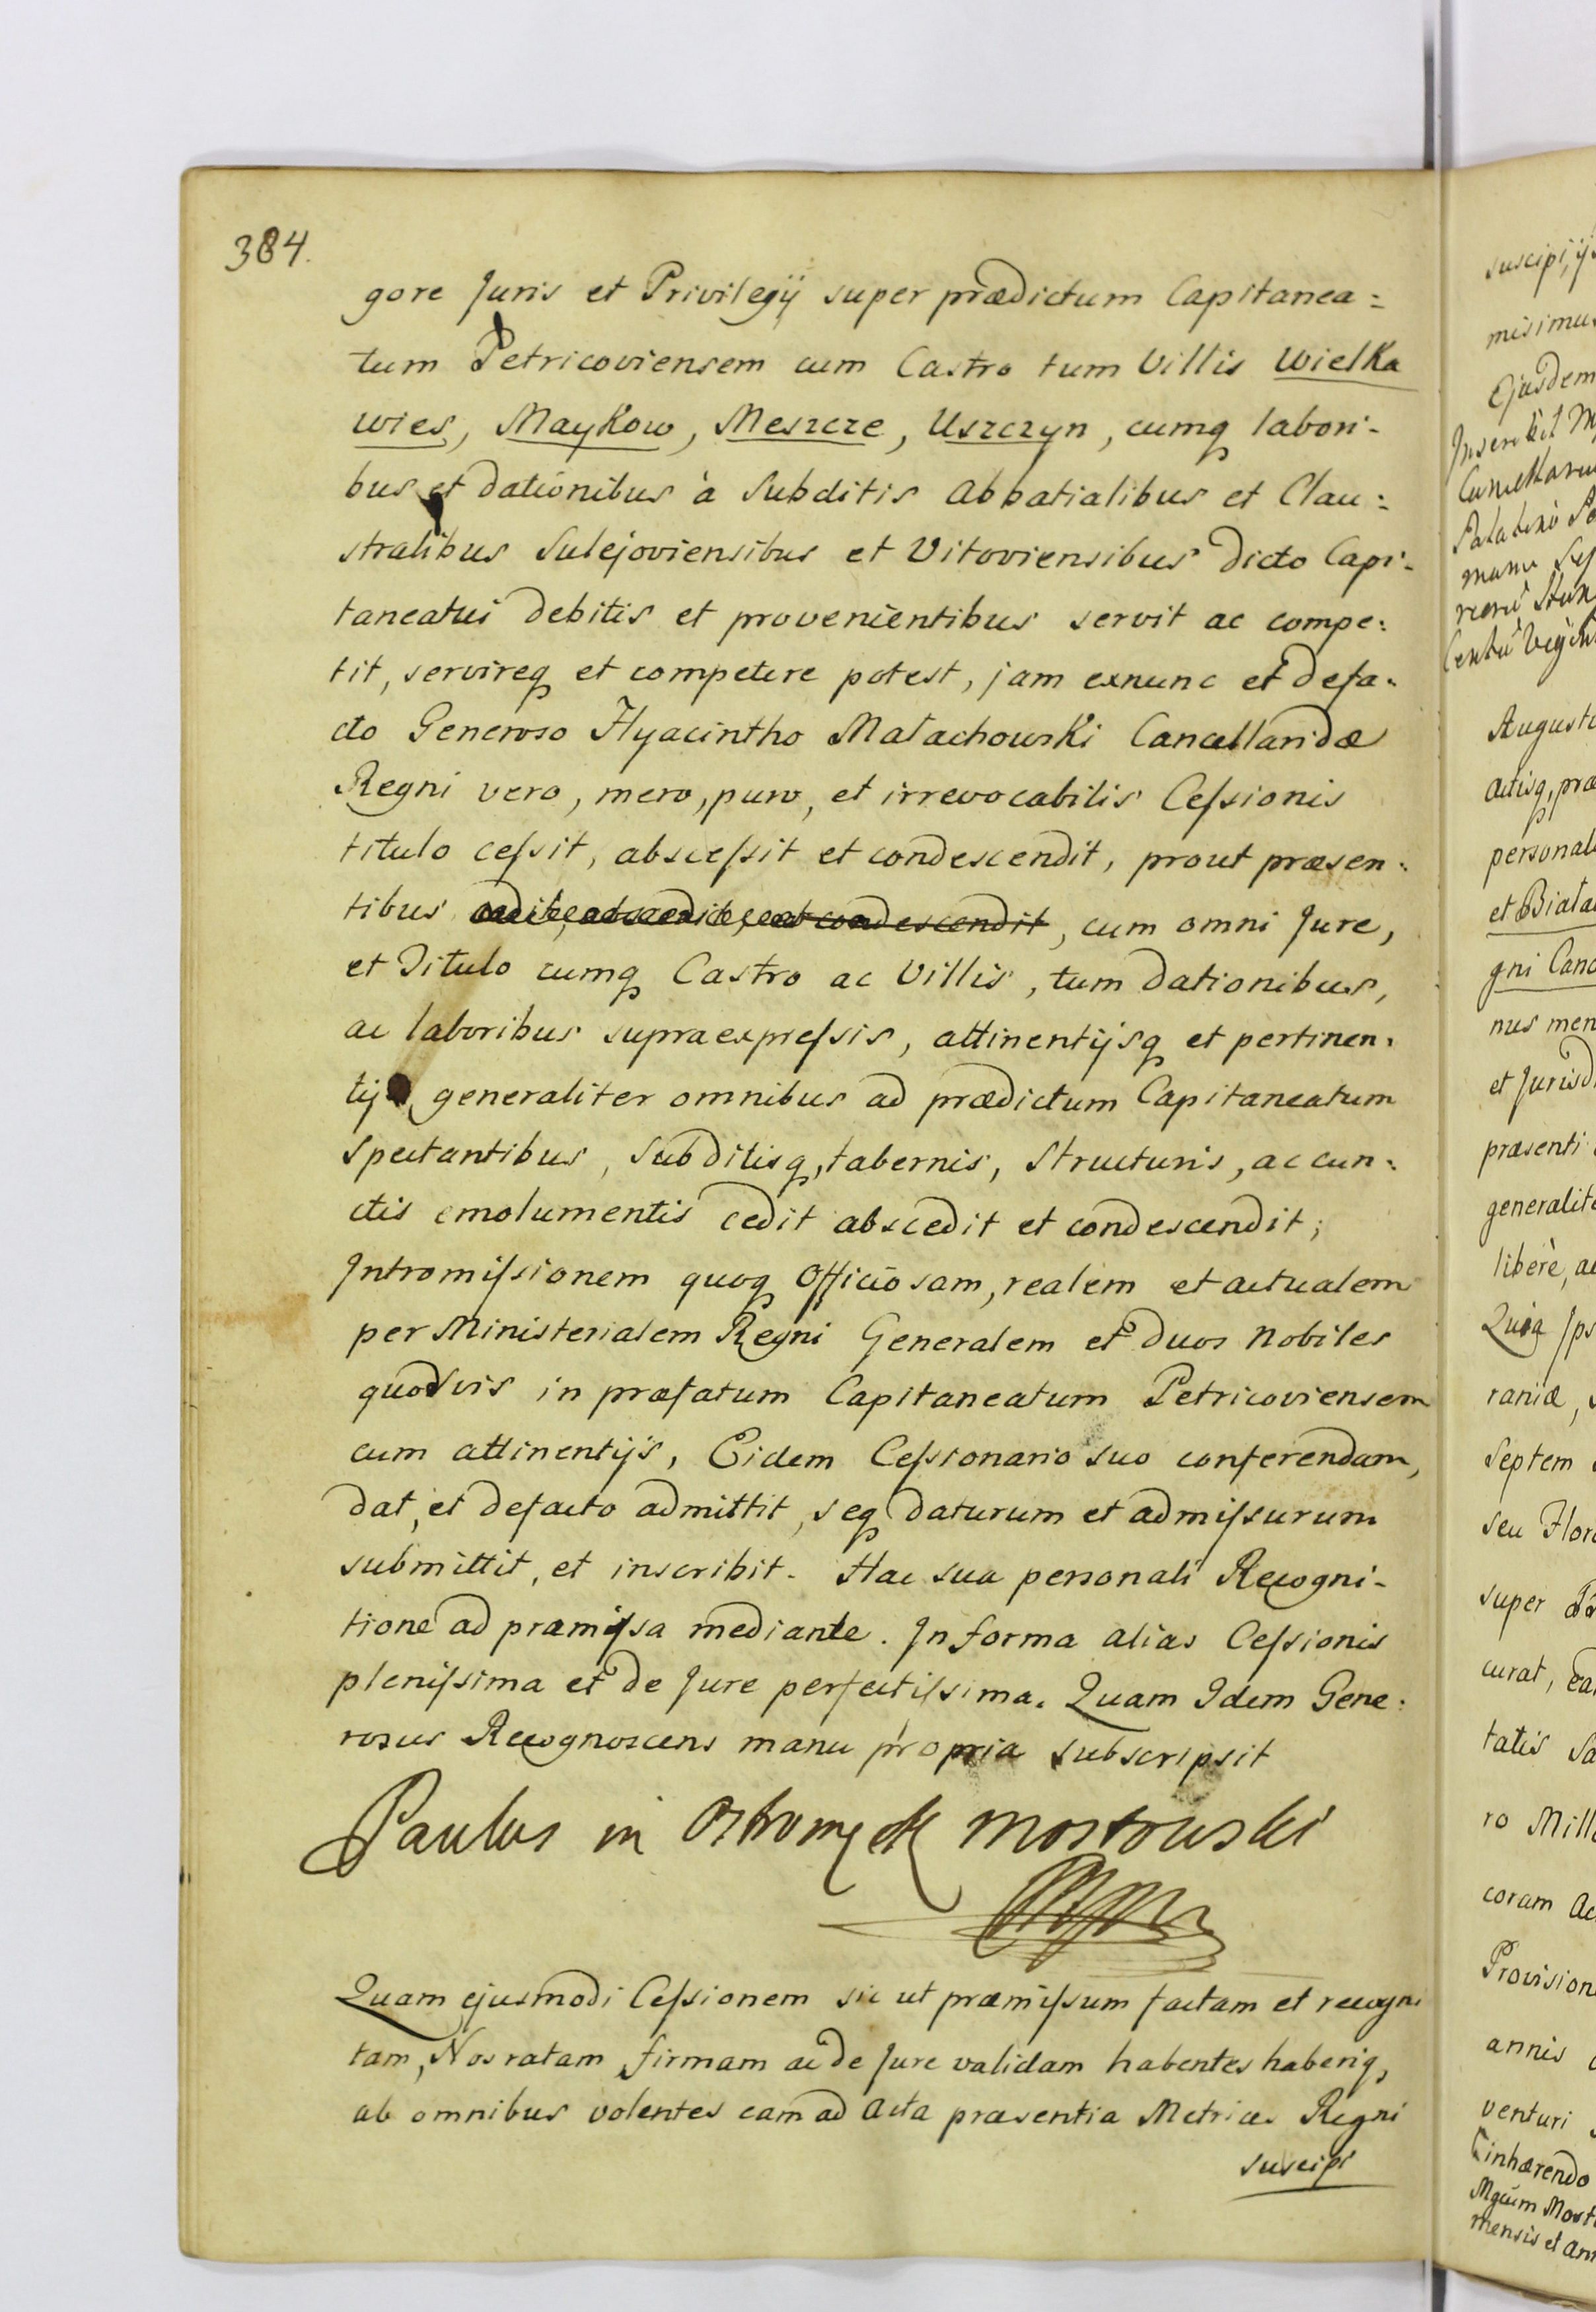 384.
gore Juris et Privilegij super prædictum Capitanea=
tum Petricoviensem cum Castro tum Villis Wielka
wies, Maykow, Meszcze, Uszczyn, cumq labori-
bus et dationibus à Subditis Abbatialibus et Clau=
stralibus Sulejoviensibus et Vitoviensibus dicto Capi-
taneatui debitis et provenientibus servit ac compe=
tit, servireq et competere potest, jam exnunc et defa=
cto Generoso Hyacintho Małachowski Cancellaridæ
Regni vero, mero, puro, et irrevocabilis Cessionis
titulo cessit, abscessit et condescendit, prout præsen=
tibus cedit, abscedit, et condescendit, cum omni Jure,
et Titulo cumq Castro ac Villis, tum dationibus,
ac laboribus supraexpressis, attinentijsq et pertinen=
tijs generaliter omnibus ad prædictum Capitaneatum
Spectantibus, Subditisq, tabernis, Structuris, ac cun=
ctis emolumentis cedit abscedit et condescendit;
Intromissionem quoq Officiosam, realem et actualem
per Ministerialem Regni Generalem et duos Nobiles
quodvis in præfatum Capitaneatum Petricoviensem
cum attinentijs, Eidem Cessionario suo conferendam,
dat, et defacto admittit, seq daturum et admissurum
submittit, et inscribit. Hac sua personali Recogni-
tione ad præmissa mediante. In forma alias Cessionis
plenissima et de Jure perfectissima. Quam Idem Gene=
rosus Recognoscens manu propria subscripsit
Paulus in Mostowski
Quam ejusmodi Cessionem sic ut præmissum factam et recogni
tam, Nos ratam firmam ac de Jure validam habentes haberiq,
ab omnibus volentes eam ad Acta præsentia Metrices Regni
suscipi
suscipi, ij
misimus
Ejusdem
Inscribit
Palatini
manu
Augusto
actisq, præ
personal
et Biała
gni Canc
nus men
et Jurisd
præsenti
generalite
liberè, ac
Quiq Ips
raniæ,
Septem
seu Flor
super
curat, ea
tatis Sa
ro Mille
coram Ac
Provision
annis
venturi
inhærendo
Mgcum Most
mensis et An